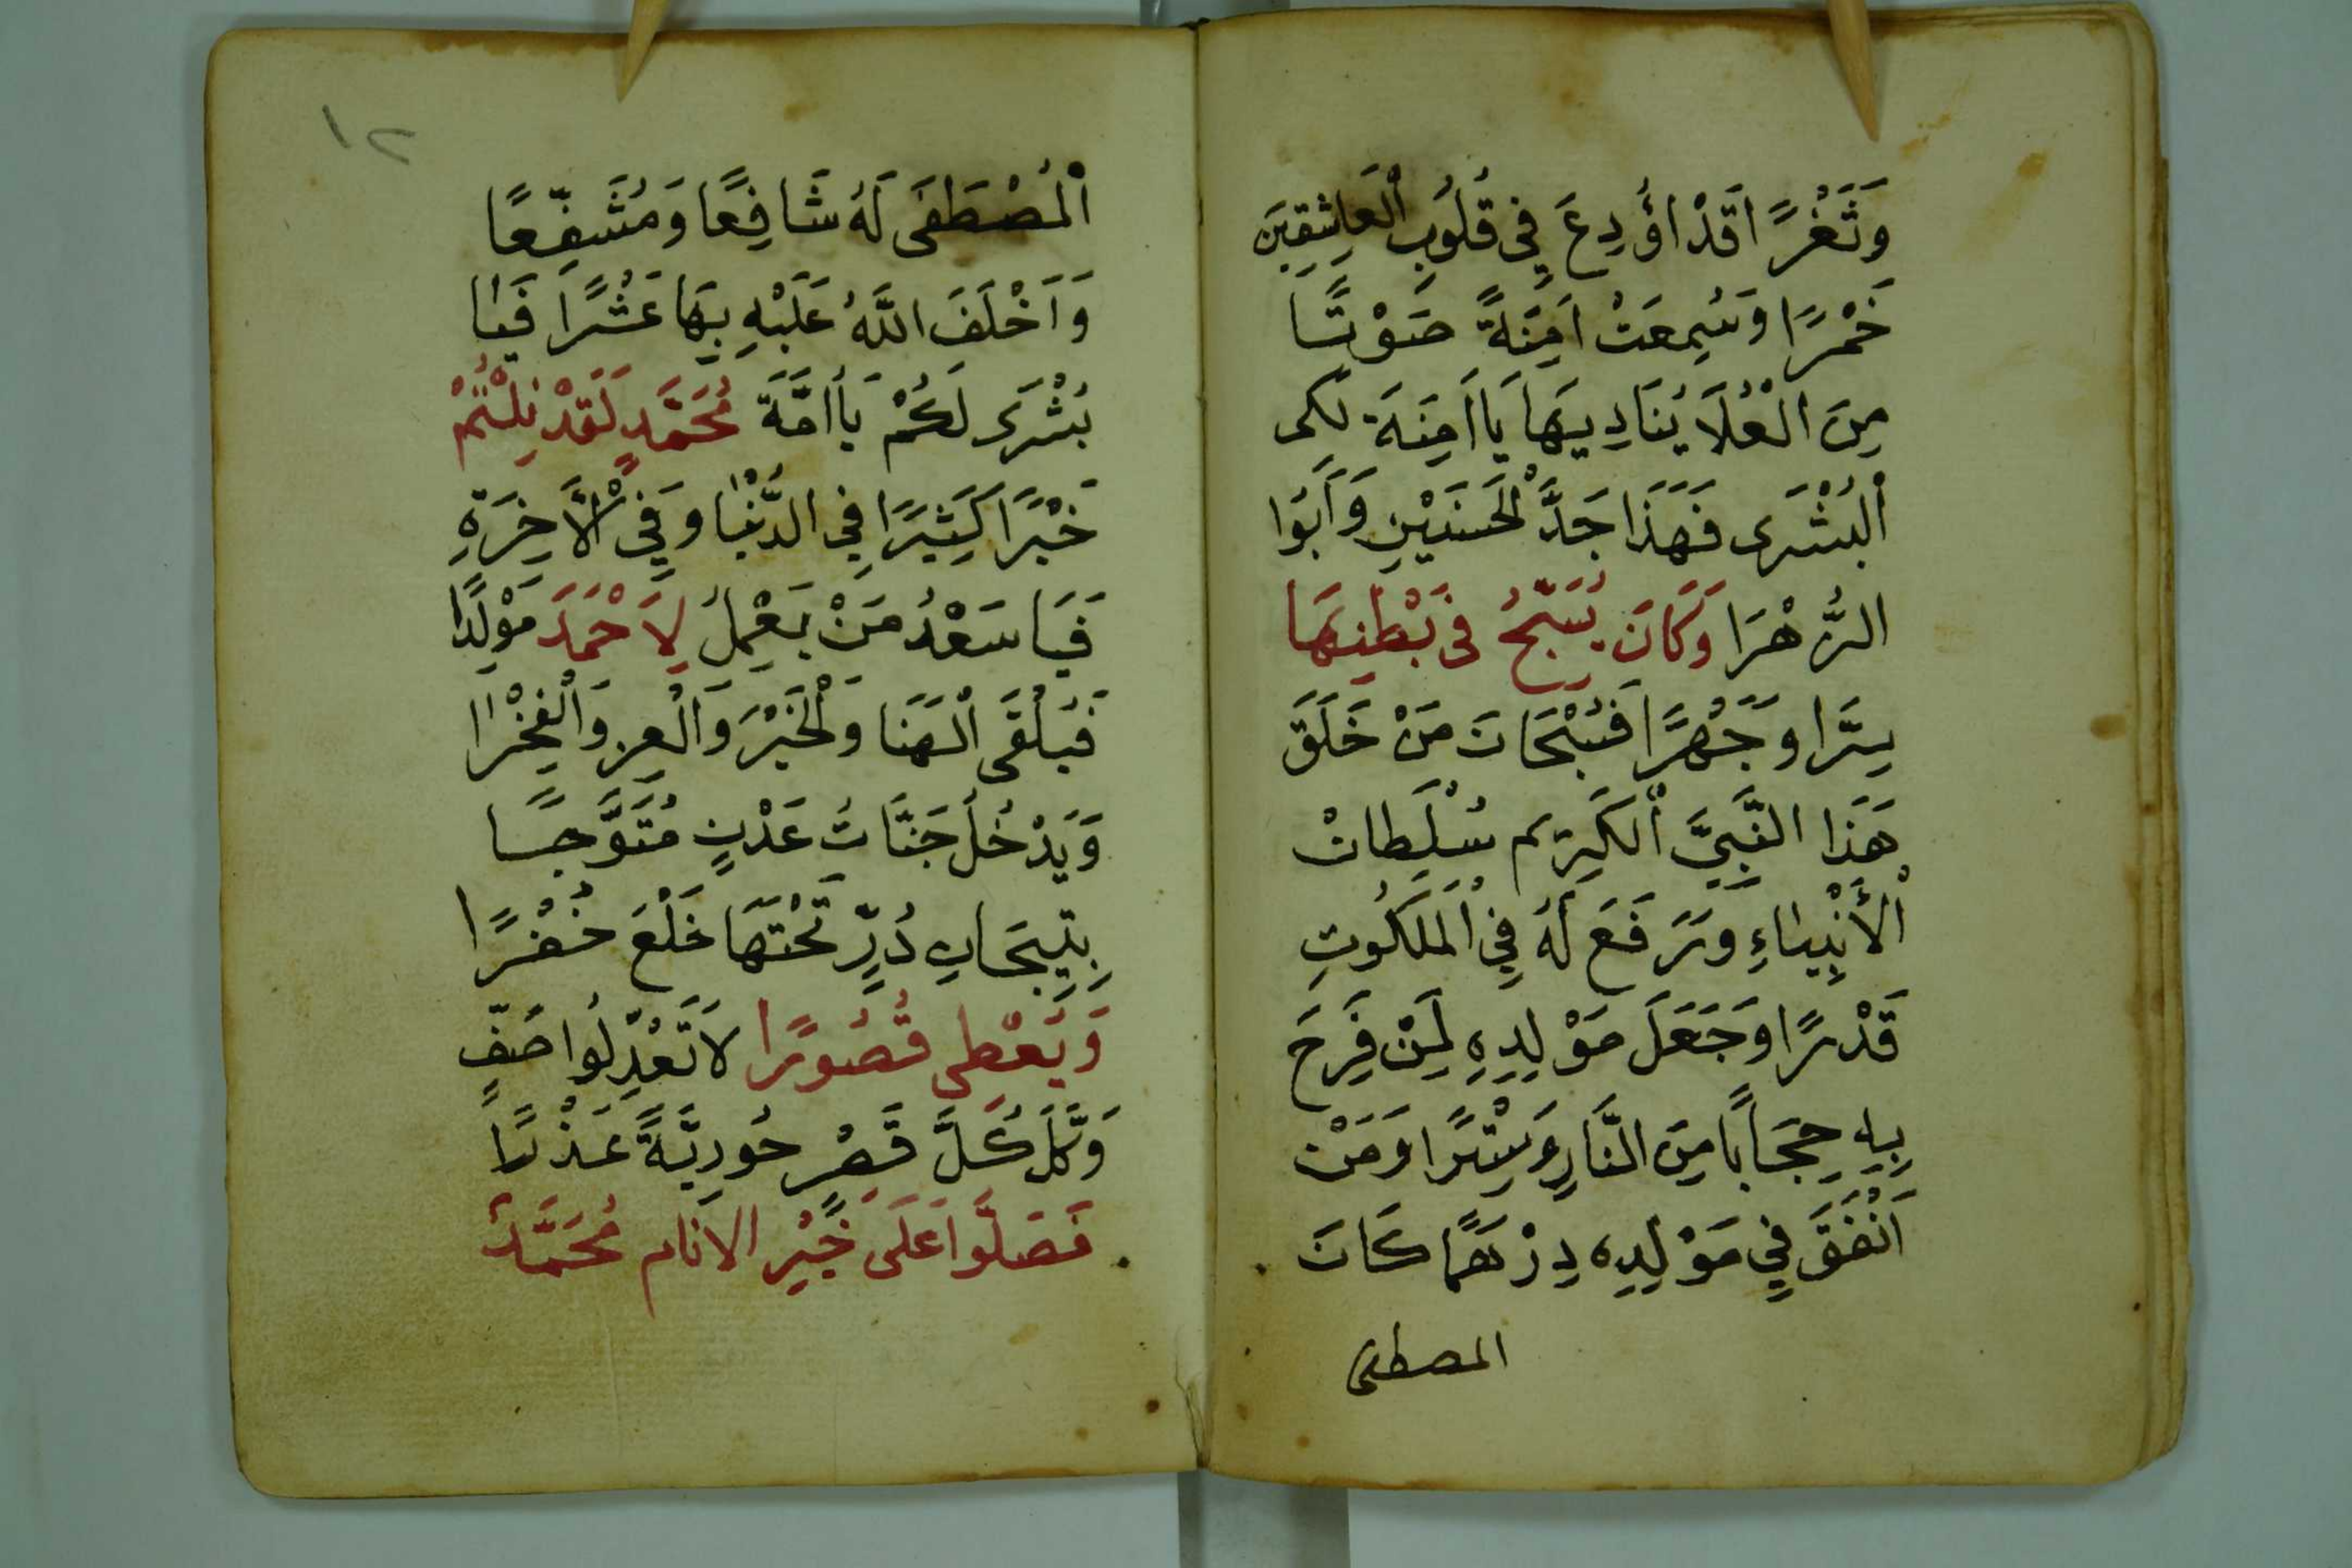 وَثَغْرًا قَدْ اُؤدِعَ فِى قُلُوبِ الْعَاشِقِينَ
خَمْرًا وَسُمِعَتْ اَمِنَةً صَوْتًا
مِنَ الْعُلَا يُنَادِيهَا يَا اَمِنَةَ لكى
الْبُشْرَى فَهَذَا جَدَّ الْحَسَنَيْنِ وَاَبُوا
الزَّهْرَا وَكَانَ يُسَبِّحُ فى بَطْنِهَا
سِرَّا وَجَهْرًا فَسُبْحَانَ مَنْ خَلَقَ
هَذَا النَّبِيَّ الْكَرِيم سُلْطَانْ
الْأَنْبِيَاءِ وَرَفَعَ لَهُ فِي الْمَلَكُوتِ
قَدْرًا وَجَعَلَ مَوْلِدِهِ لِمَنْ فَرِحَ
بِهِ حِجَابًا مِنَ النَّارِ وَسِتْرًا وَمَنْ
اَنْفَقَ فِي مَوْلِدِه دِرْهَمًا كَانَ
المصطفى
١٢
الْمُصْطَفَى لَهُ شَافِعًا وَمُشَفِّعًا
وَاَخْلَفَ اللَّهُ عَلَيْهِ بِهَا عَشْرًا فَيَا
بُشْرَى لَكُمْ يَا اُمَّةَ مُحَمَّدٍ لَقَدْ نِلْتُمْ
خَيْرًا كَثِيرًا فِي الدُّنْيَا وَفِي الْأَخِرَةِ
فَيَا سَعْدُ مَنْ يَعْمِلُ لِاَحْمَدَ مَوْلِدًا
فَيَلْقَى الْهَنَا وَالْخَيْرَ وَالْعِز وَالْفَخْرَا
وَيَدْخُلُ جَنَّاتُ عَدْنٍ مُتَوَّجًا
بِتِيجَانِ دُرٍّ تَحْتَهَا خَلْعَ خُضْرًا
وَيُعْطَى قُصُورًا لَا تَعُدِّلُوا صَفٍّ
وَكُلَ كُلَّ قَصْرٍ حُورِيَّةً عَذْرَا
فَصَلُّوا عَلَى خَيْرِ الانام مُحَمَّدٌ